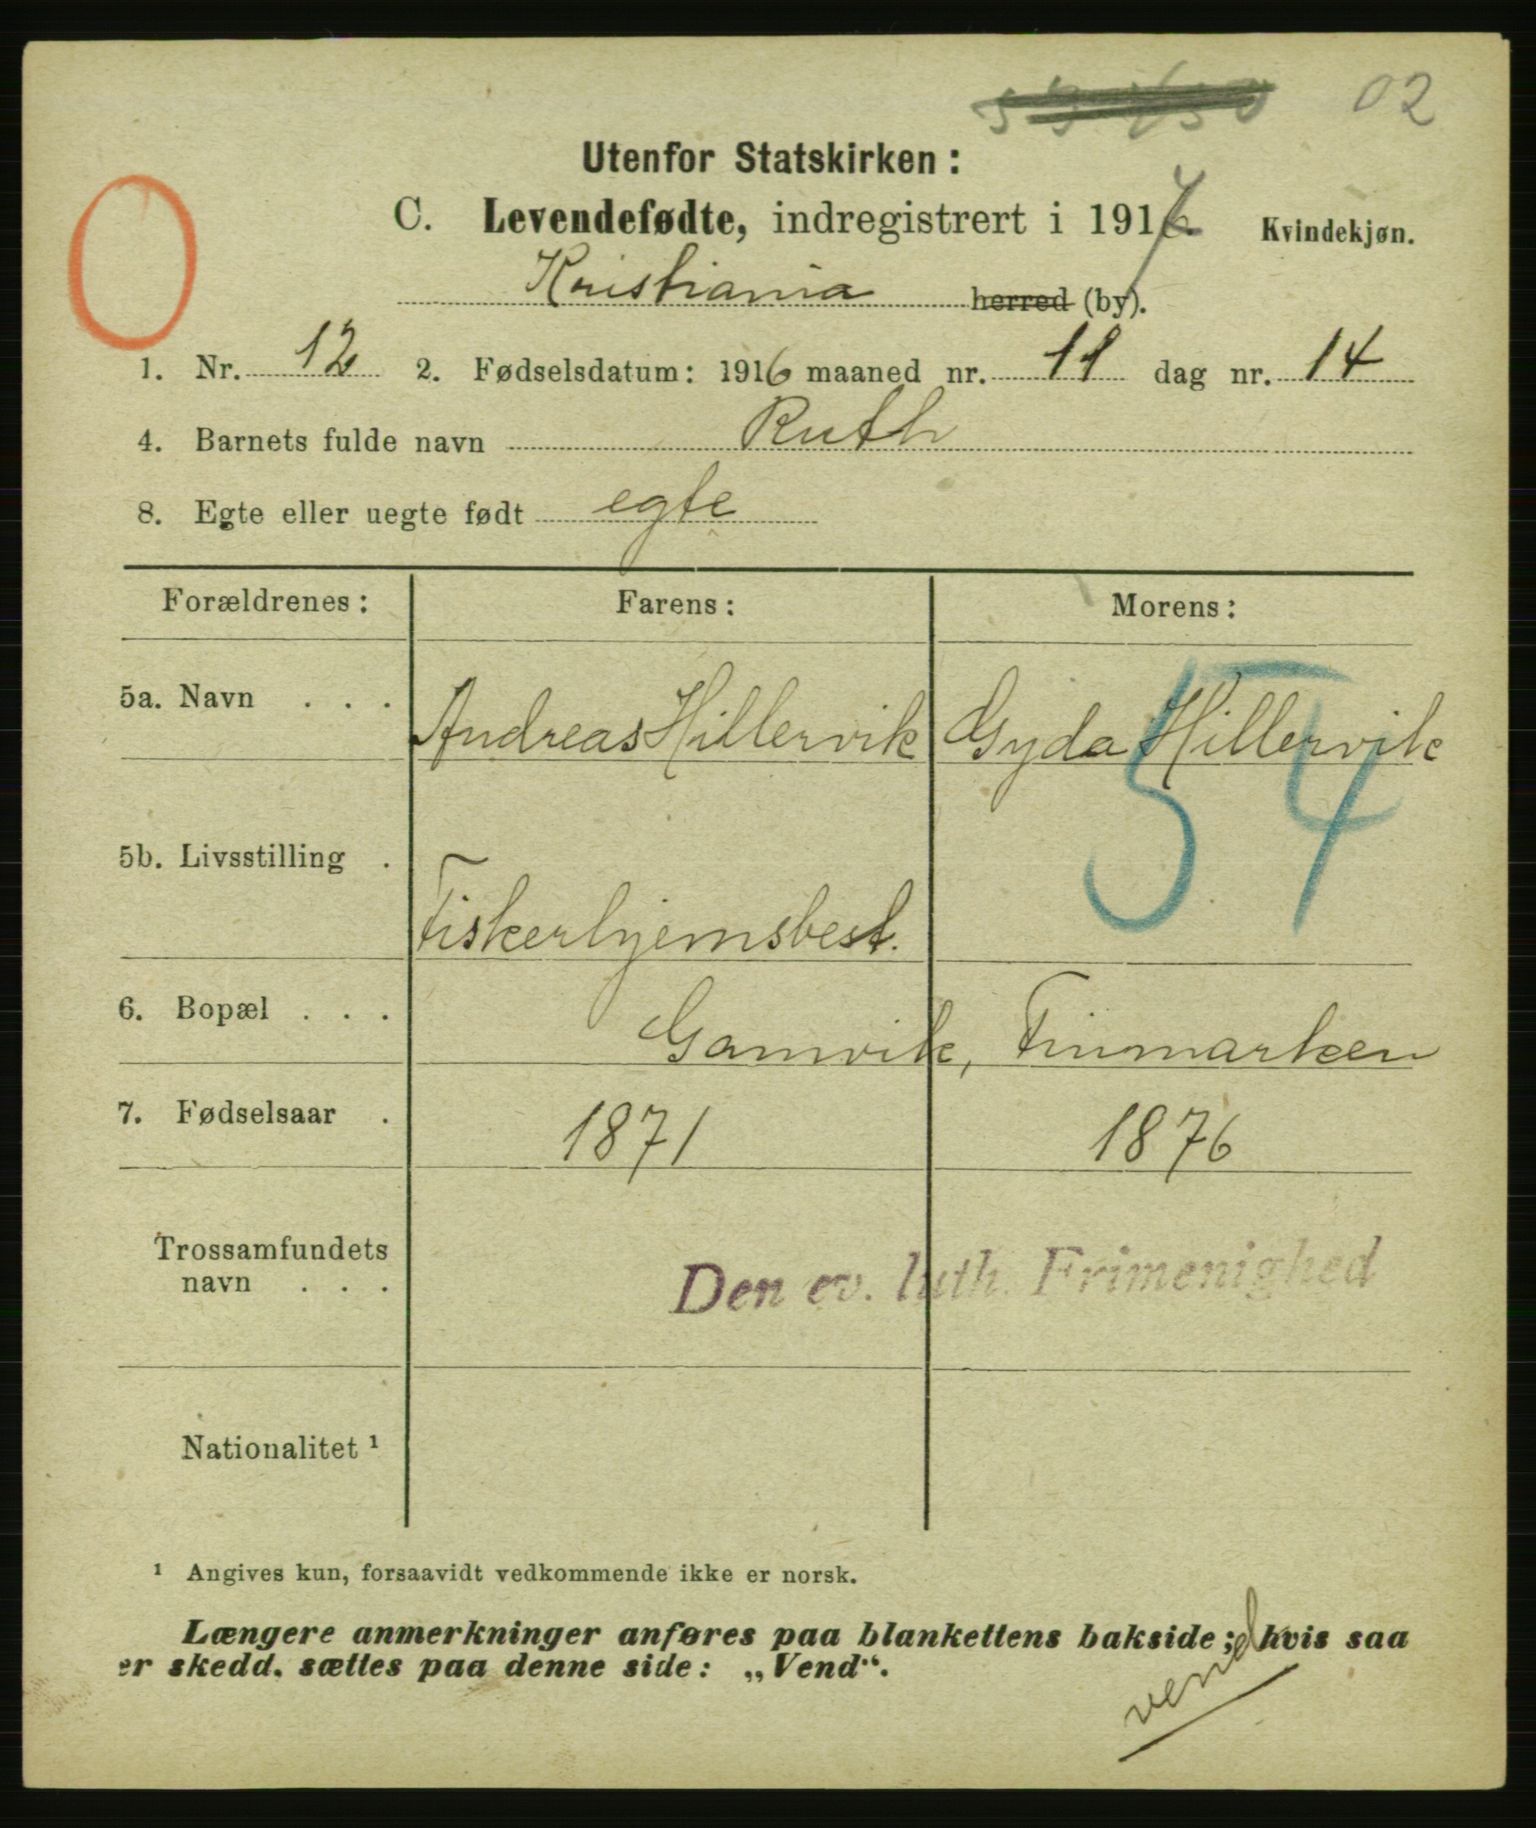 02
Utenfor Statskirken:
C. Levendefødte, indregistrert i 1917 Kvindekjøn.
Kristiania herred (by).
1. Nr. 12 2. Fødselsdatum: 1916 maaned nr. 11 dag nr. 14
4. Barnets fulde navn Ruth
8. Egte eller uegte født egte
Forældrenes: Farens: Morens:
5a. Navn . . . Andreas Hillervik Gyda Hillervik
54
5b. Livsstilling . Fiskerhjemsbest.
6. Bopæl . . . Gamvik, Finmarken
7. Fødselsaar . 1871 1876
Trossamfundets
navn . . . Den ev. luth. Frimenighed
Nationalitet ¹
¹ Angives kun, forsaavidt vedkommende ikke er norsk.
Længere anmerkninger anføres paa blankettens bakside; hvis saa
er skedd, sættes paa denne side: „Vend“.
vend